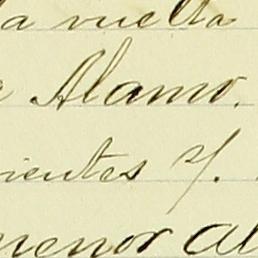 la vuelta
Alamo.
rientes y.
menor al